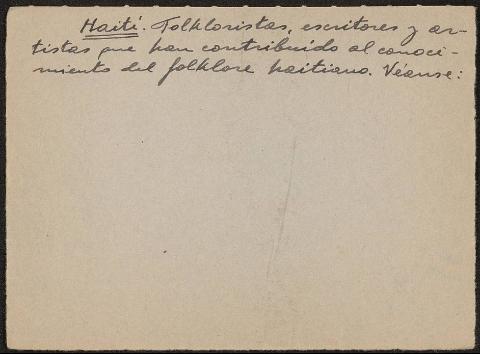 Haití. Folkloristas, escritores y ar-
tistas que han contribuido al conoci-
miento del folklore haitiano. Véanse: